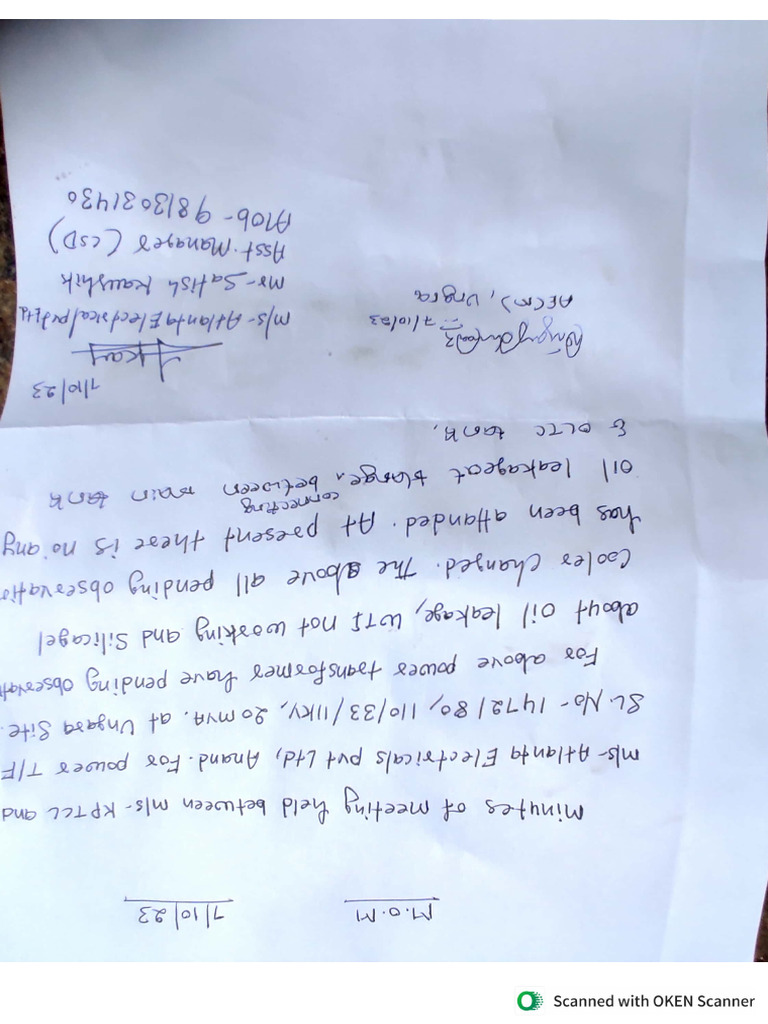 M.O.M
7/10/23
Minutes of meeting held between M/s- KPTCL and
M/s- Atlanta Electricals Pvt Ltd, Anand. For power T/F
SL. No- 1472/80, 110/33/11KV, 20 MVA. at Ungara Site.
For above power transformer have pending observati
about oil leakage, WTI not working and Silicagel
Cooler changed. The above all pending observatio
has been attanded. At present there is no any
oil leakage at flange, connecting between main tank
& OLTC tank.
7/10/23
7/10/23
AE(M), Ungra
M/s- Atlanta Electrical Pvt Ltd
Mr- Satish Kaushik
Asst. Manager (CSD)
Mob- 9813031430
Scanned with OKEN Scanner